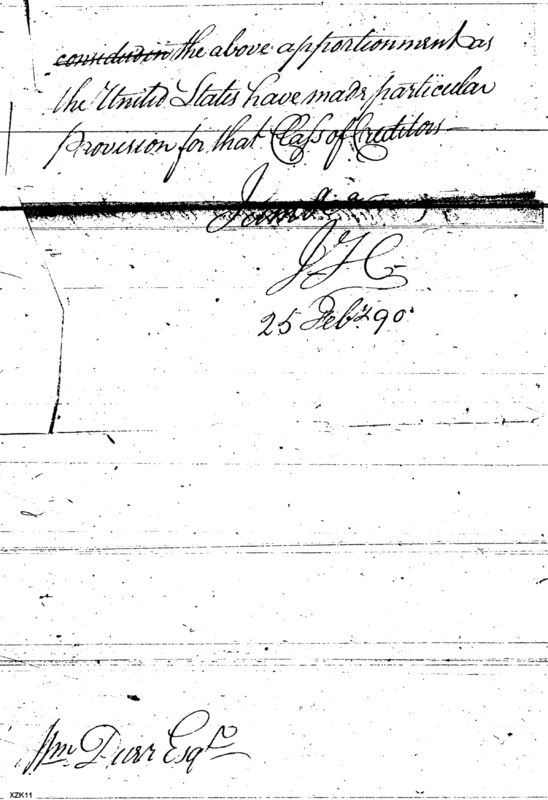 considerin the above apportionment as
the United States have made particular
provision for that Class of Creditors—
J F C—
25 Feby. 90.
Wm. Duer Esqr.
XZK11